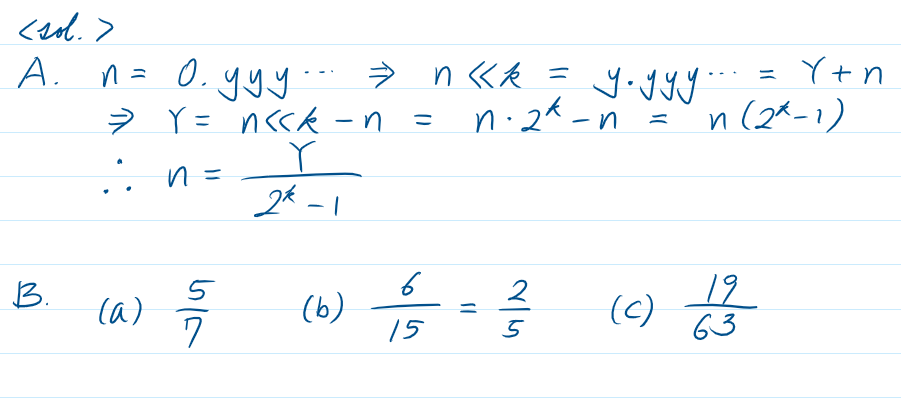 <sol.>
A. n = 0.yyy··· ⇒ n<<k = y.yyy··· = Y+n
⇒ Y = n<<k - n = n·2^k - n = n(2^k-1)
∴ n = Y/(2^k - 1)
B. (a) 5/7 (b) 6/15 = 2/5 (c) 19/63